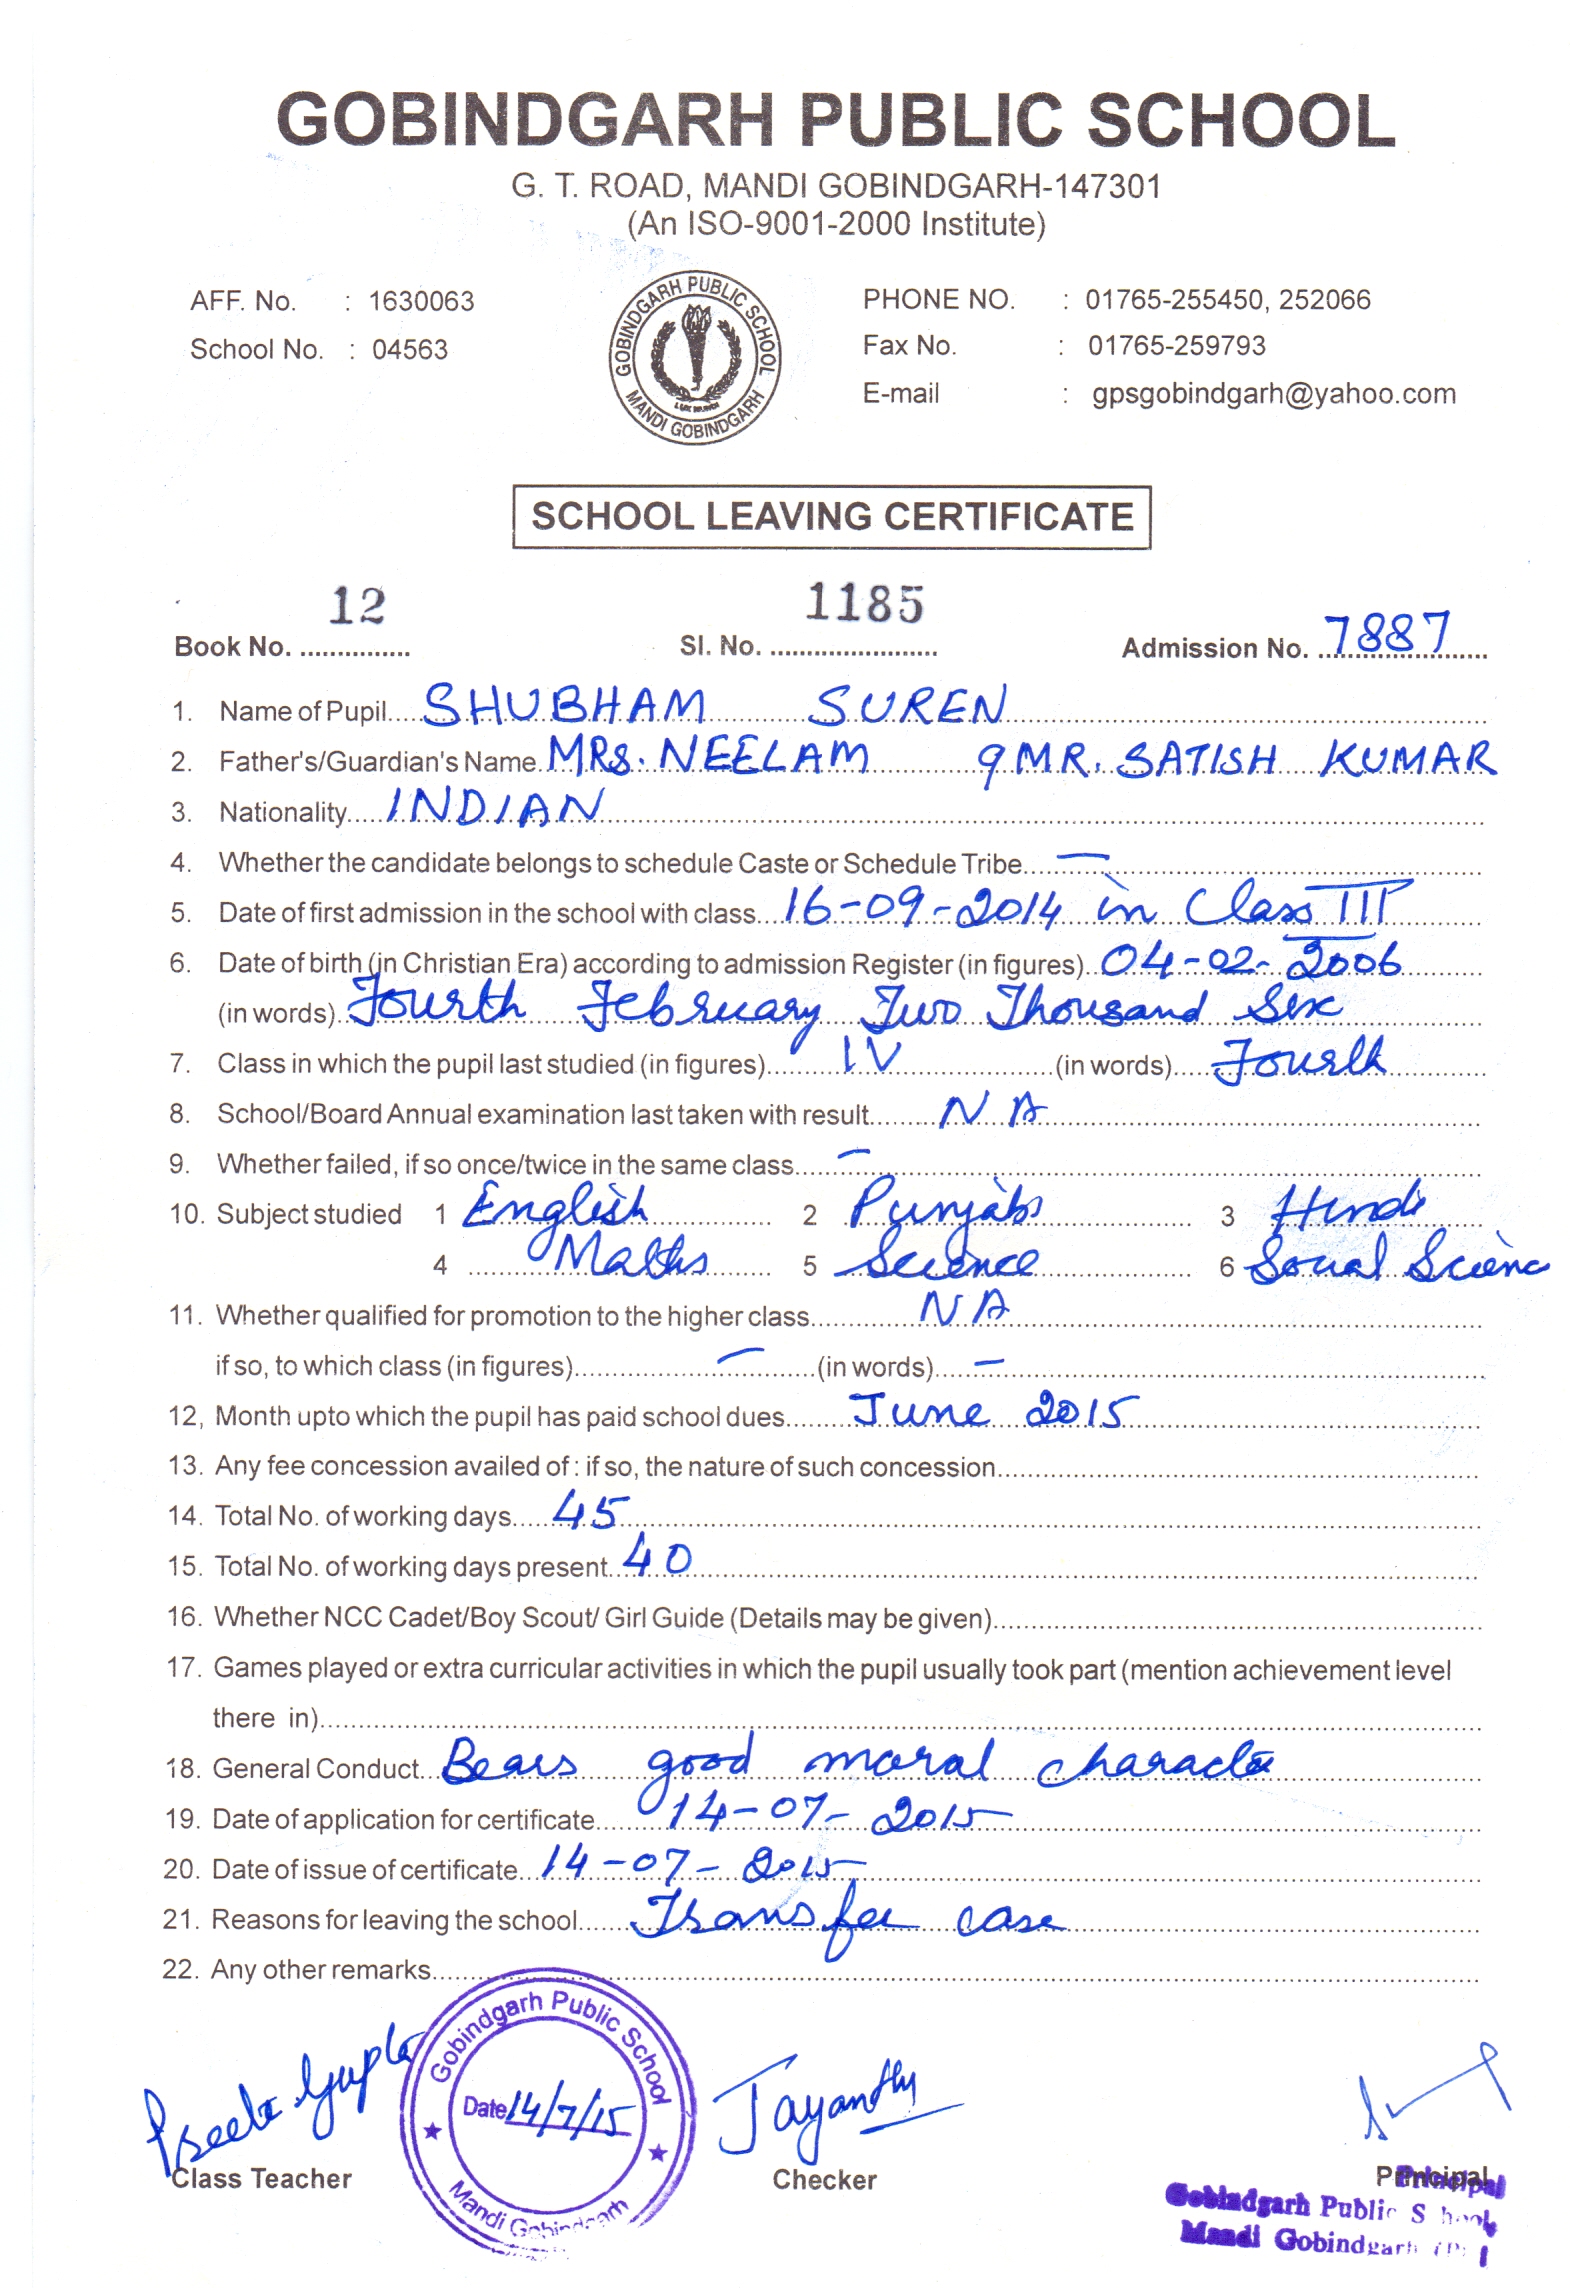 GOBINDGARH PUBLIC SCHOOL
G. T. ROAD, MANDI GOBINDGARH-147301
(An ISO-9001-2000 Institute)
AFF. No. : 1630063
School No. : 04563
GOBINDGARH PUBLIC SCHOOL
MANDI GOBINDGARH
PHONE NO. : 01765-255450, 252066
Fax No. : 01765-259793
E-mail : gpsgobindgarh@yahoo.com
SCHOOL LEAVING CERTIFICATE
Book No. 12 Sl. No. 1185 Admission No. 7887
1. Name of Pupil SHUBHAM SUREN
2. Father's/Guardian's Name MRS. NEELAM MR. SATISH KUMAR
3. Nationality INDIAN
4. Whether the candidate belongs to schedule Caste or Schedule Tribe —
5. Date of first admission in the school with class 16-09-2014 in Class III
6. Date of birth (in Christian Era) according to admission Register (in figures) 04-02-2006
(in words) Fourth February Two Thousand Six
7. Class in which the pupil last studied (in figures) IV (in words) Fourth
8. School/Board Annual examination last taken with result NA
9. Whether failed, if so once/twice in the same class —
10. Subject studied 1 English 2 Punjabi 3 Hindi
4 Maths 5 Science 6 Social Scienc
11. Whether qualified for promotion to the higher class NA
if so, to which class (in figures) — (in words) —
12, Month upto which the pupil has paid school dues June 2015
13. Any fee concession availed of : if so, the nature of such concession
14. Total No. of working days 45
15. Total No. of working days present 40
16. Whether NCC Cadet/Boy Scout/ Girl Guide (Details may be given)
17. Games played or extra curricular activities in which the pupil usually took part (mention achievement level
there in)
18. General Conduct Bears good moral character
19. Date of application for certificate 14-07-2015
20. Date of issue of certificate 14-07-2015
21. Reasons for leaving the school Transfer case
22. Any other remarks
Preeti Gupta
Class Teacher
Gobindgarh Public School
Date 14/7/15
Mandi Gobindgarh
Jayanthy
Checker
Principal
Principal
Gobindgarh Public School
Mandi Gobindgarh